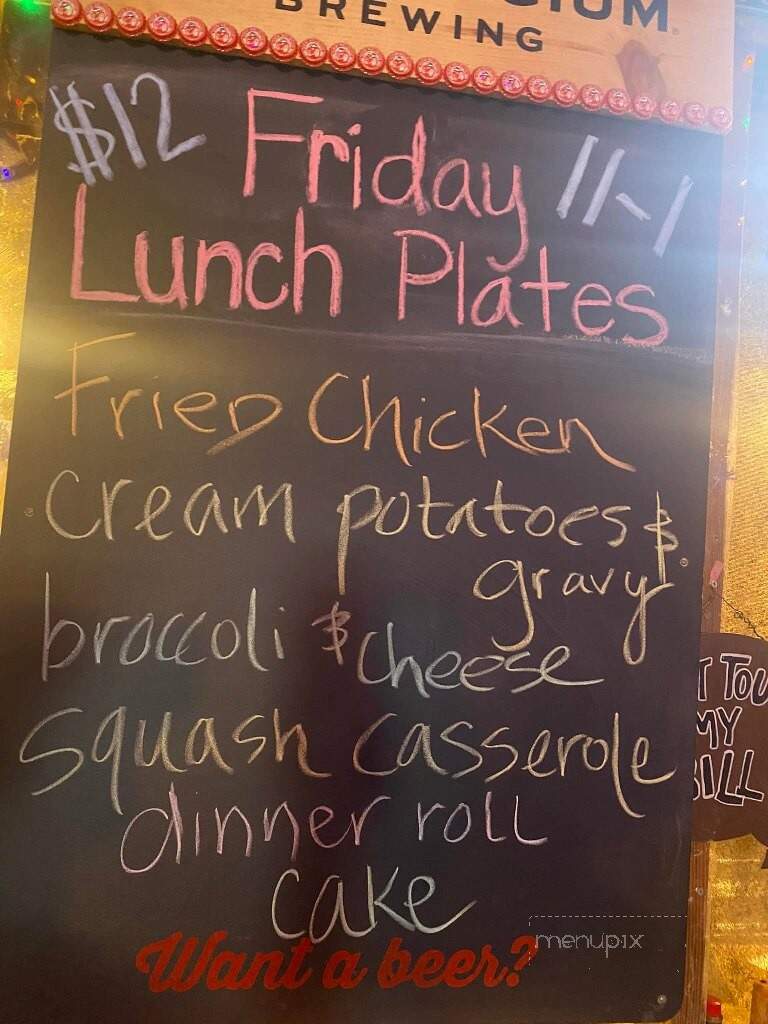 BREWING
$12 Friday 11-1
Lunch Plates
Fried Chicken
Cream potatoes &
gravy
broccoli & cheese
Squash casserole
dinner roll
cake
Want a beer?
menupix
MY